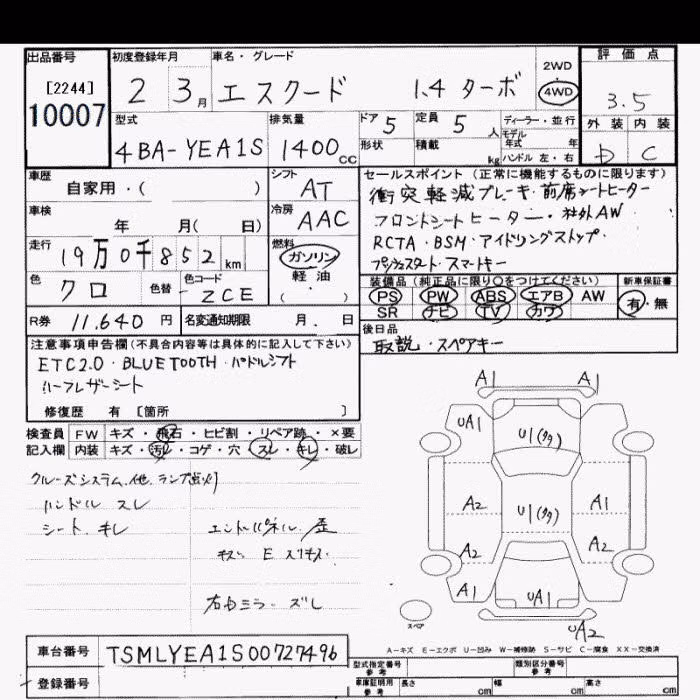 出品番号 初度登録年月 車名・グレード 評価点
[2244] 2 3月 エスクード 1.4 ターボ 2WD 4WD 3.5
10007
型式 排気量 ドア 5 定員 5 人 ディーラー・並行 外装 内装
モデル 年式 年
4BA-YEA1S 1400 cc 形状 積載 kg ハンドル 左・右 D C
車歴 シフト セールスポイント (正常に機能するものに限ります)
自家用・( ) AT 衝突軽減ブレーキ・前席シートヒーター
車検 冷房 フロントシートヒーター・社外AW
年 月( 日) AAC RCTA・BSM・アイドリングストップ・
走行 燃料 プッシュスタート・スマートキー
19万0千852 km ガソリン
軽油・
( )
装備品 (純正品に限り○をつけてください) 新車保証書
色 色替 色コード PS PW ABS エアB AW 有・無
クロ ZCE SR ナビ TV カワ
R券 11,640 円 名変通知期限 月.日 後日品
取説・スペアキー
注意事項申告欄(不具合内容等は具体的に記入して下さい)
ETC2.0・BLUETOOTH・パドルシフト
ハーフレザーシート
修復歴 有 [箇所 ]
検査員 FW キズ・飛石・ヒビ割・リペア跡・×要
記入欄 内装 キズ・汚レ・コゲ・穴・スレ・キレ・破レ
クルーズシステム、他、ランプ点灯
ハンドル スレ
シート、キレ エンドパネル、歪
キズ E スリキズ
右ドミラー ズレ
A1 A1
UA1 U1(タタ)
A2 U1(タタ) A1
A2 A2
A1 UA1
スペア UA2
A-キズ E-エクボ U-凹み W-補修跡 S-サビ C-腐食 XX-交換済
車台番号 TSMLYEA1S00727496
型式指定番号 参考 類別区分番号 参考
登録番号 車庫証明用 参考 長さ cm 幅 cm 高さ cm